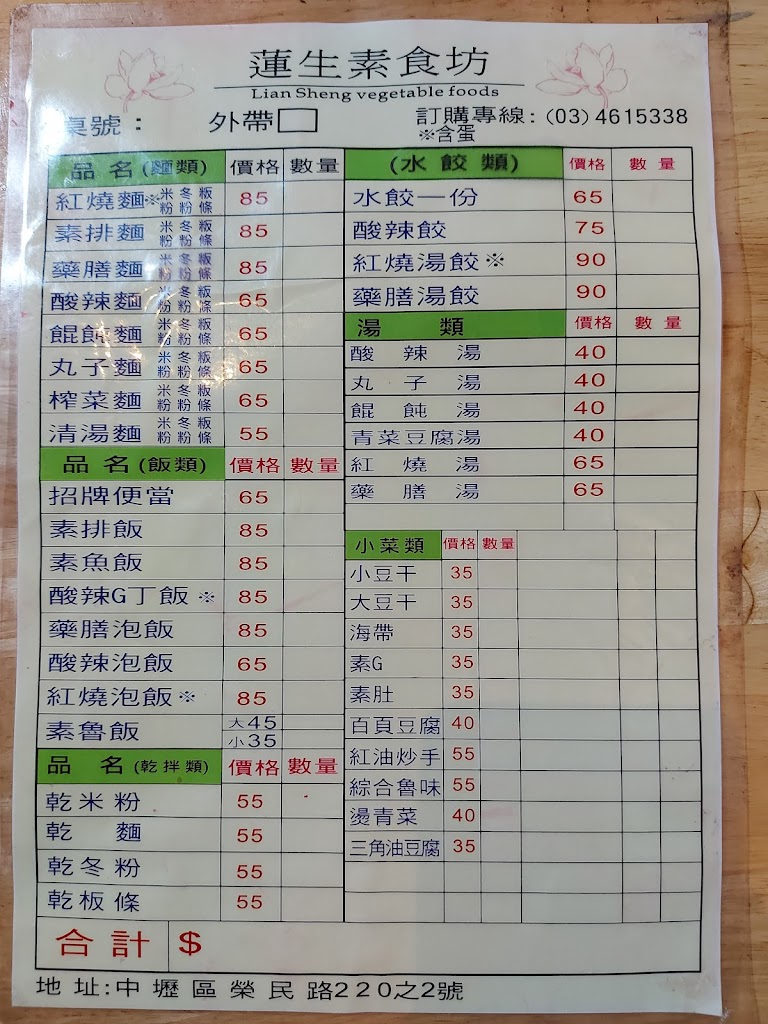 蓮生素食坊
Lian Sheng vegetable foods
桌號： 外帶 訂購專線:(03)4615338
※含蛋
品名(麵類) 價格 數量
紅燒麵※ 米粉 冬粉 粄條 85
素排麵 米粉 冬粉 粄條 85
藥膳麵 米粉 冬粉 粄條 85
酸辣麵 米粉 冬粉 粄條 65
餛飩麵 米粉 冬粉 粄條 65
丸子麵 米粉 冬粉 粄條 65
榨菜麵 米粉 冬粉 粄條 65
清湯麵 米粉 冬粉 粄條 55
品名(飯類) 價格 數量
招牌便當 65
素排飯 85
素魚飯 85
酸辣G丁飯※ 85
藥膳泡飯 85
酸辣泡飯 65
紅燒泡飯※ 85
素魯飯 大45
小35
品名(乾拌類) 價格 數量
乾米粉 55
乾麵 55
乾冬粉 55
乾板條 55
(水餃類) 價格 數量
水餃一份 65
酸辣餃 75
紅燒湯餃※ 90
藥膳湯餃 90
湯類 價格 數量
酸辣湯 40
丸子湯 40
餛飩湯 40
青菜豆腐湯 40
紅燒湯 65
藥膳湯 65
小菜類 價格 數量
小豆干 35
大豆干 35
海帶 35
素G 35
素肚 35
百頁豆腐 40
紅油炒手 55
綜合魯味 55
燙青菜 40
三角油豆腐 35
合計 $
地址:中壢區榮民路220之2號